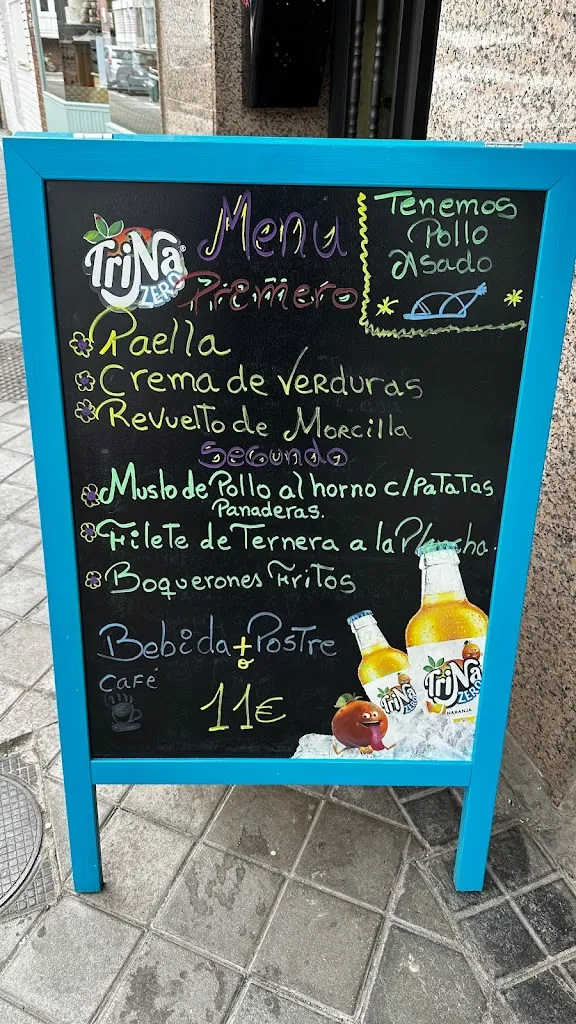 TriNa
ZERO
Menu
Primero
Tenemos
Pollo
Asado
Paella
Crema de Verduras
Revuelto de Morcilla
Segundo
Muslo de Pollo al horno c/patatas
Panaderas.
Filete de Ternera a la Plancha.
Boquerones Fritos
Bebida + Postre
o
Café
11€
TriNa
ZERO
TriNa
ZERO
NARANJA